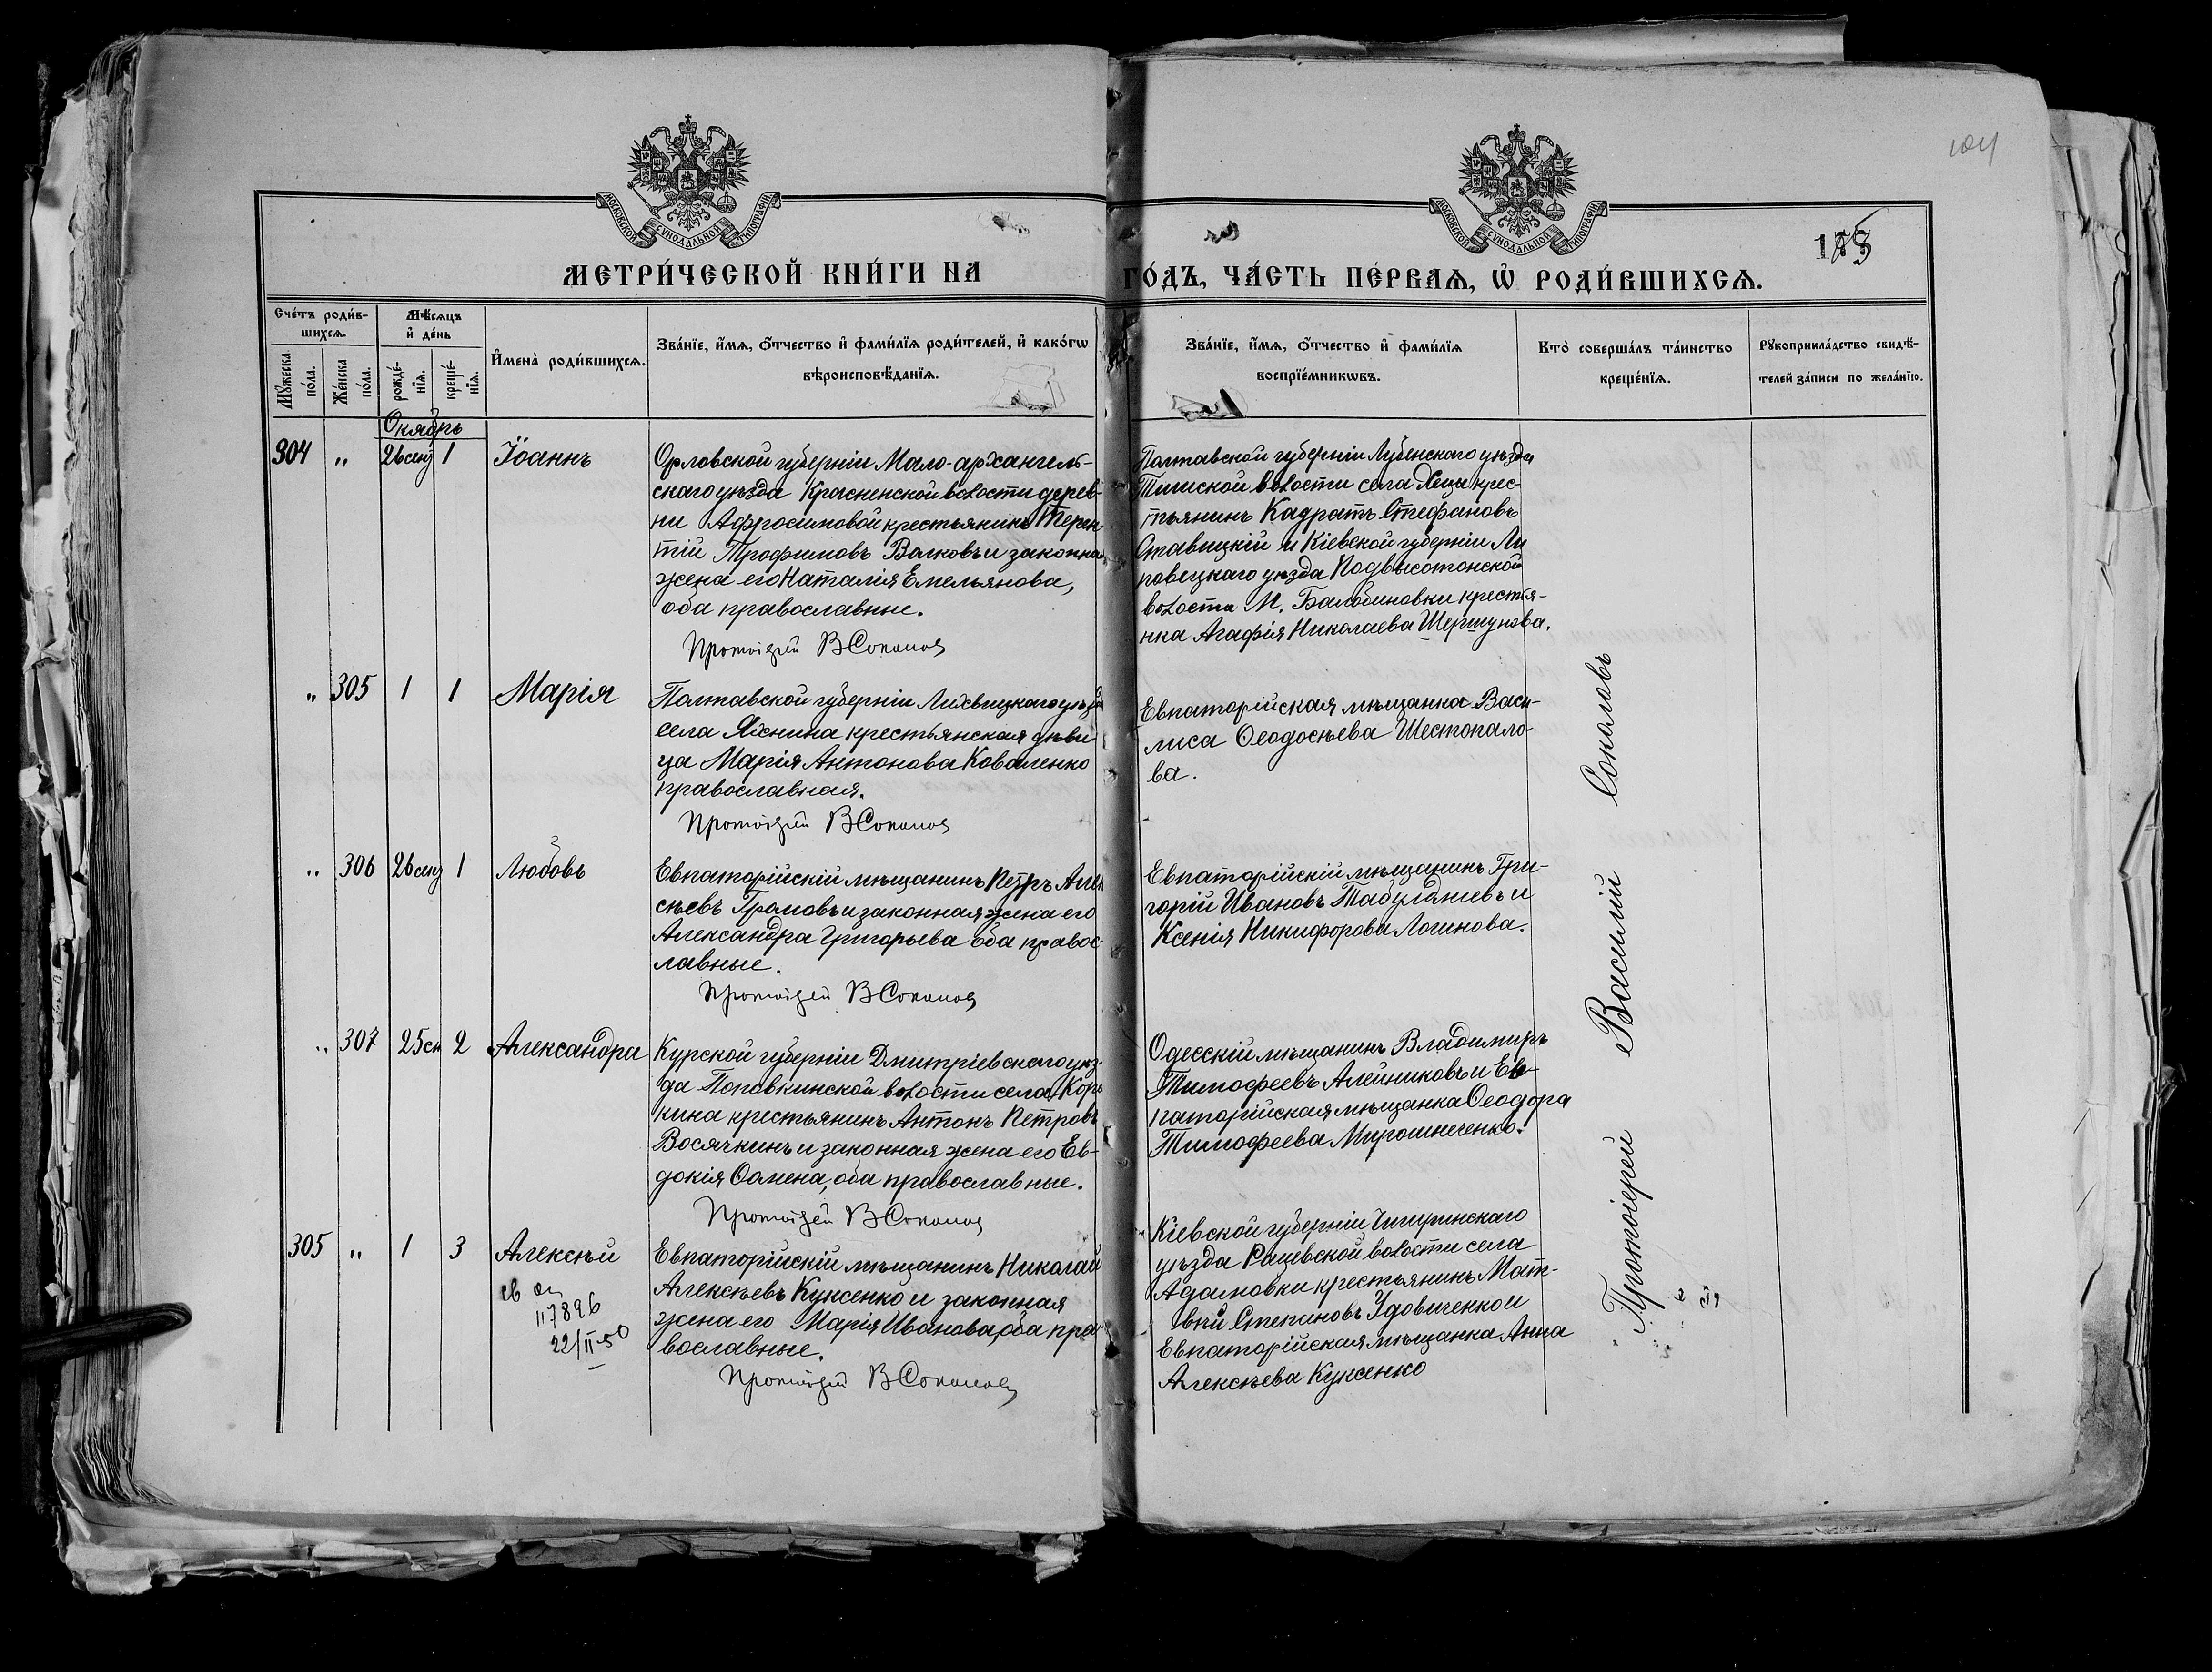 104
МОСКОВСКОЙ СѴНОДАЛЬНОЙ ТИПОГРАФІИ
МОСКОВСКОЙ СѴНОДАЛЬНОЙ ТИПОГРАФІИ
МЕТРИ́ЧЕСКОЙ КНИ́ГИ НА
ГО́ДЪ, ЧА́СТЬ ПЕ́РВАЯ, Ѡ҆ РОДИ́ВШИХСЯ.
Сче́тъ роди́в-
шихся.
Мꙋжеска по́ла.
Же́нска по́ла.
Мѣ́сяцъ
и҆ де́нь
рожде́-
нїя.
креще́-
нїя.
И҆мена̀ роди́вшихся.
Зва́нїе, и҆́мя, ѻ҆́тчество и҆ фами́лїя роди́телей, и҆ како́гѡ
вѣроисповѣ́данїя.
Зва́нїе, и҆́мя, ѻ҆́тчество и҆ фами́лїя
воспрїе́мникѡвъ.
Кто̀ соверша́лъ та́инство
креще́нїя.
Рꙋкоприкла́дство свидѣ́-
телей за́писи по жела́нїю.
Октябрь
304 " 26 сент 1 Іоаннъ
Орловской губерніи Мало-архангель-
скаго уѣзда Красненской волости дерев-
ни Афросимовой крестьянинъ Терен
тій Трофимовъ Волковъ и законная
жена его Наталія Емельянова,
оба православные.
Протоіерей В Соколов
Полтавской губерніи Лубенскаго уѣзда
волости села крес-
тьянинъ Кадратъ Стефановъ
Ставицкій и Кіевской губерніи Ли
повецкаго уѣзда Подвысотонской
волости М. Балабиновки крестья-
нка Агафія Николаева Шершунова.
" 305 1 1 Марія
Полтавской губерніи Лохвицкаго уѣзда
села Яхнина крестьянская дѣви
ца Марія Антонова Коваленко
православная.
Протоіерей В Соколов
Евпаторійская мѣщанка Васи-
лиса Ѳеодосѣева Шестопало-
ва.
" 306 26 сент 1 Любовь
Евпаторійскій мѣщанинъ Петръ Алек
сѣевъ Громовъ и законная жена его
Александра Григорьева оба правос-
лавные.
Протоіерей В Соколов
Евпаторійскій мѣщанинъ Гри-
горій Ивановъ и
Ксенія Никифорова Логинова.
" 307 25 сен 2 Александра
Курской губерніи Дмитріевскаго уѣз-
да Поповкинской волости села Кор
кина крестьянинъ Антонъ Петровъ
Восячкинъ и законная жена его Ев-
докія Ѳомена, оба православные.
Протоіерей В Соколов
Одесскій мѣщанинъ Владимиръ
Тимофеевъ Алейниковъ и Ев-
паторійская мѣщанка Ѳеодора
Тимофеева Мирошнеченко.
305 " 1 3 Алексѣй
117896
22/II-50
Евпаторійскій мѣщанинъ Николай
Алексѣевъ Куксенко и законная
жена его Марія Иванова, оба пра
вославные.
Протоіерей В Соколов
Кіевской губерніи Чигиринскаго
уѣзда волости села
Адамовки крестьянинъ Мат-
вѣй Степановъ Удовиченко и
Евпаторійская мѣщанка Анна
Алексѣева Куксенко
Протоіерей Василій Соколовъ